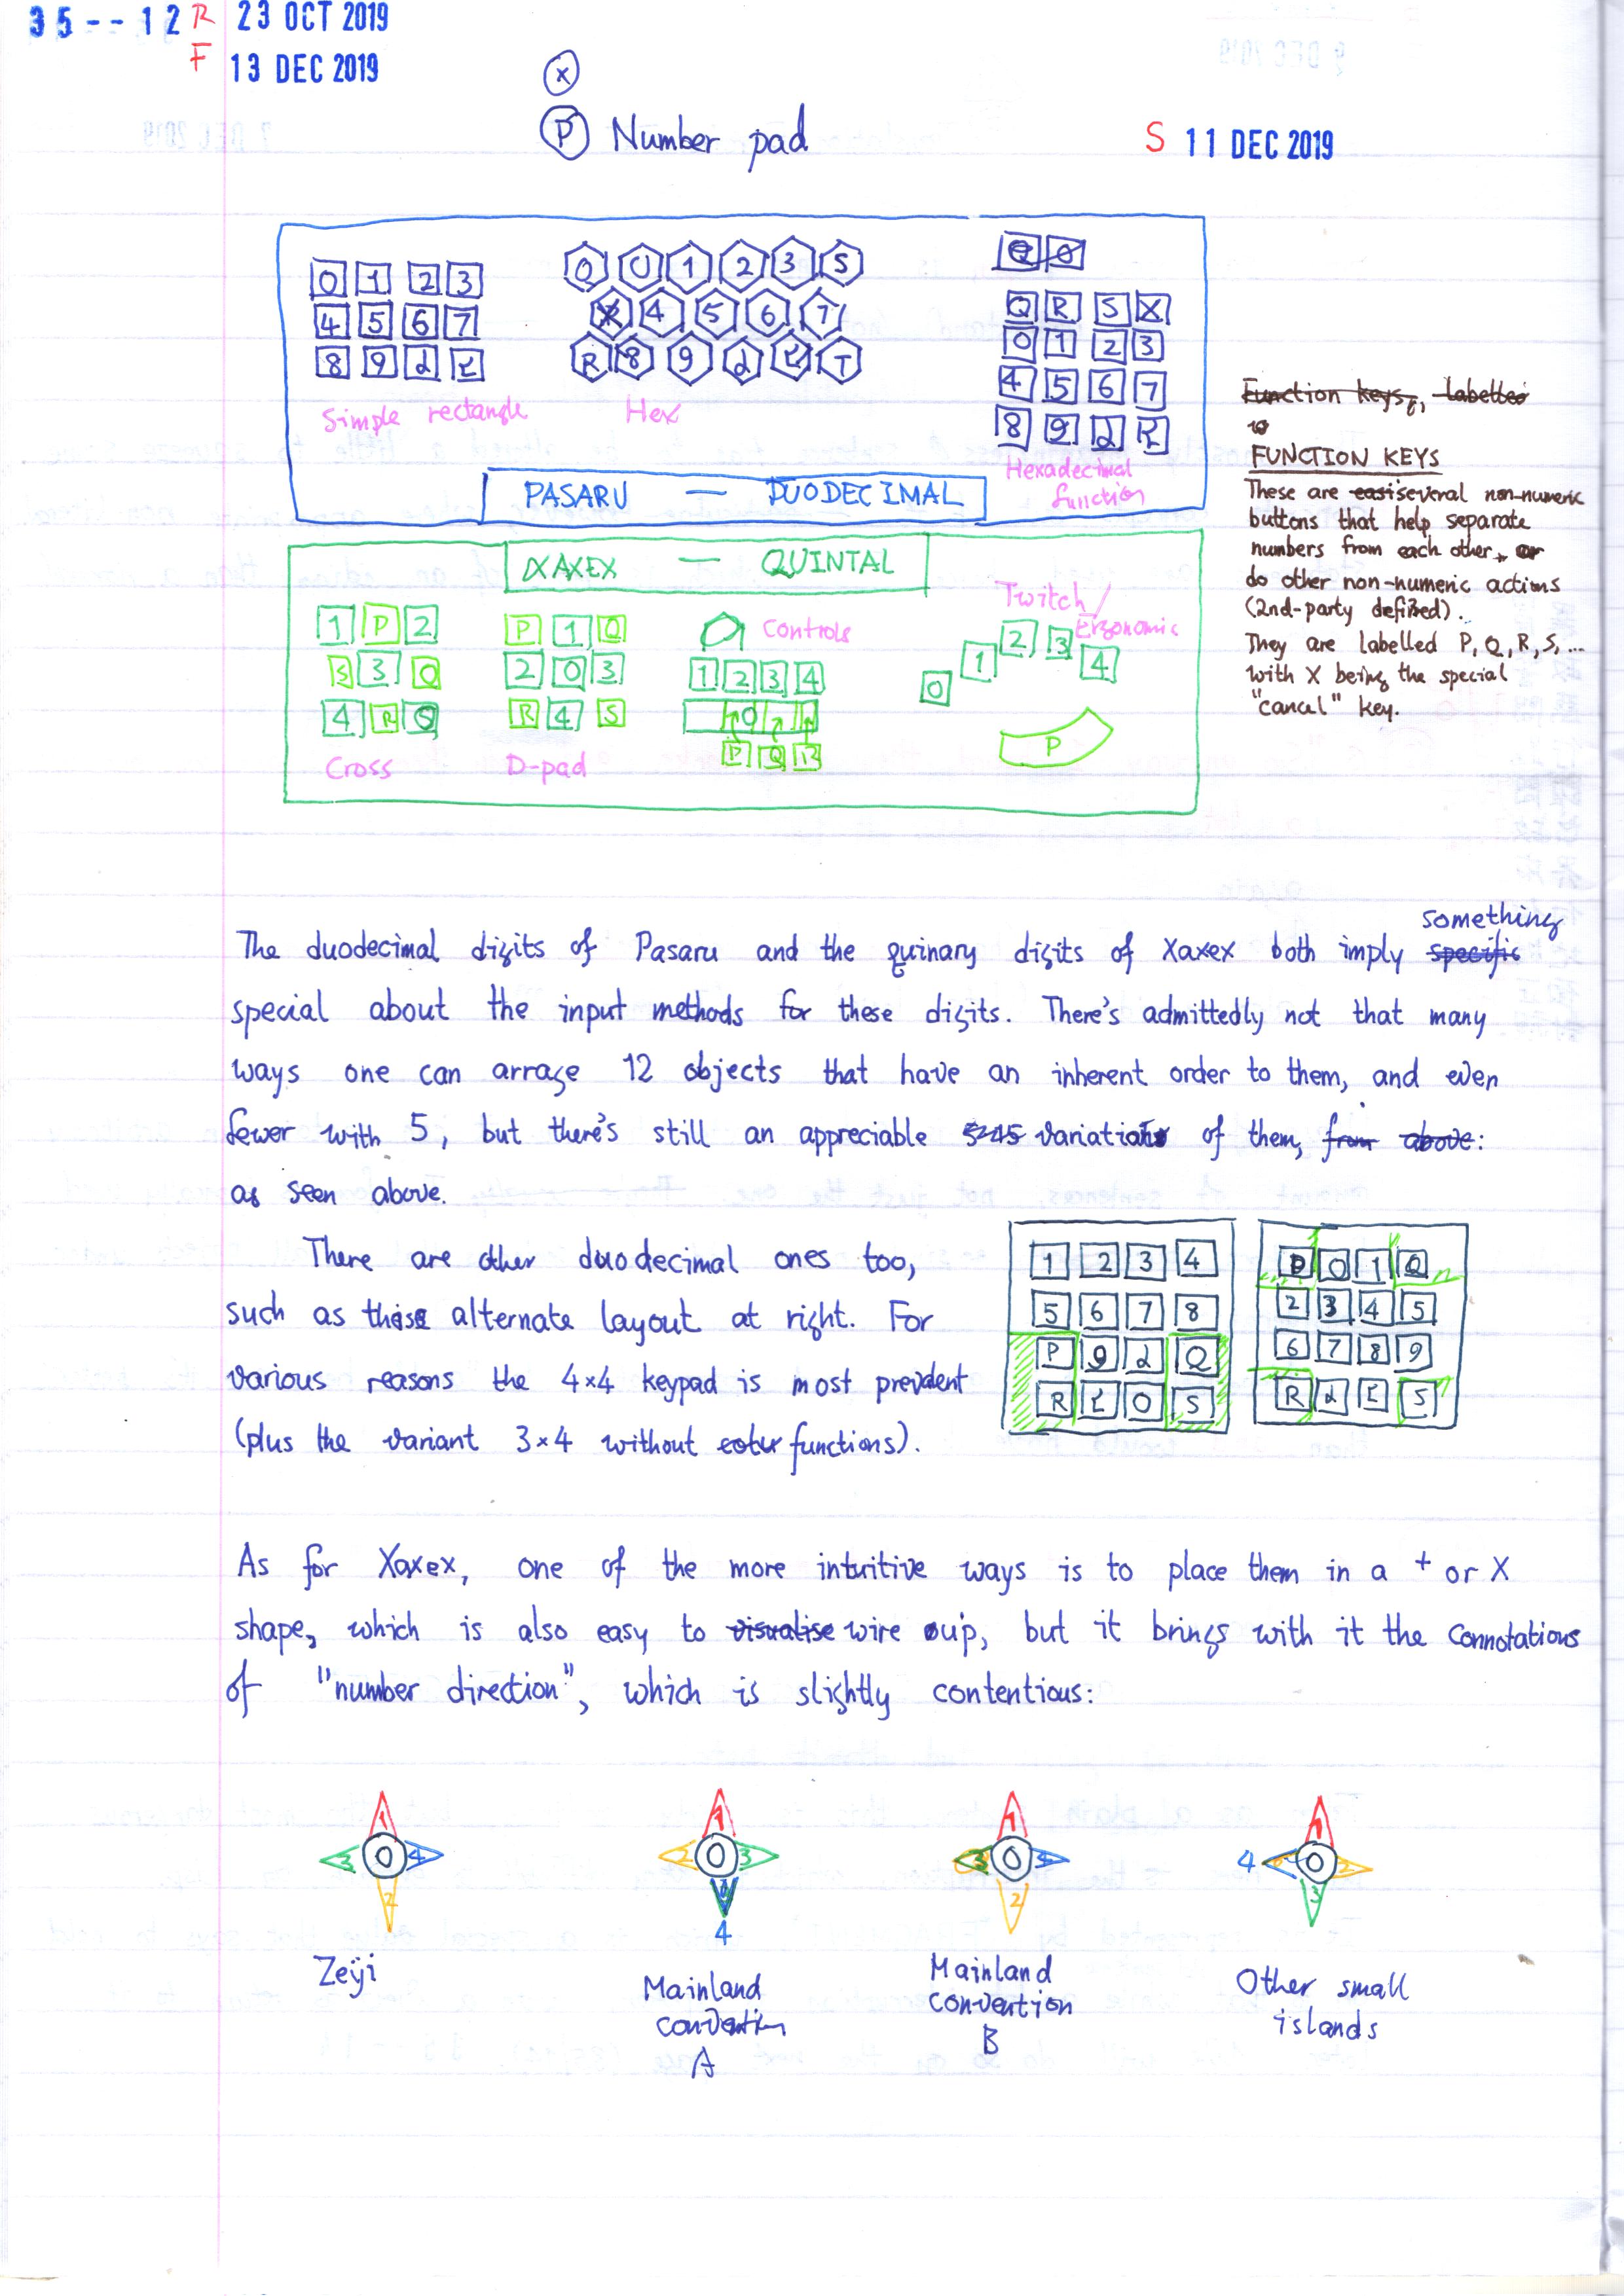 35--12 R 23 OCT 2019
F 13 DEC 2019
X
P Number pad
S 11 DEC 2019
0 1 2 3
4 5 6 7
8 9 ↊ ↋
Simple rectangle
Q U 1 2 3 S
X 4 5 6 7
R 8 9 ↊ ↋ T
Hex
Q R S X
0 1 2 3
4 5 6 7
8 9 ↊ ↋
Hexadecimal
function
PASARU — DUODECIMAL
XAXEX — QUINTAL
1 P 2
S 3 Q
4 R
Cross
P 1 Q
2 0 3
R 4 S
D-pad
Controls
1 2 3 4
0
P Q R
Twitch/
Ergonomic
0 1 2 3 4
P
Function keys, labelled
FUNCTION KEYS
These are easi several non-numeric
buttons that help separate
numbers from each other, or
do other non-numeric actions
(2nd-party defined).
They are labelled P, Q, R, S, ...
with X being the special
"cancel" key.
something
The duodecimal digits of Pasaru and the quinary digits of Xaxex both imply specific
special about the input methods for these digits. There's admittedly not that many
ways one can arrage 12 objects that have an inherent order to them, and even
fewer with 5, but there's still an appreciable variations of them, from above:
as seen above.
There are other duodecimal ones too,
such as these alternate layout at right. For
various reasons the 4×4 keypad is most prevdent
(plus the variant 3×4 without functions).
1 2 3 4
5 6 7 8
P 9 ↊ Q
R ↋ 0 S
P 0 1 Q
2 3 4 5
6 7 8 9
R ↊ ↋ S
As for Xaxex, one of the more intuitive ways is to place them in a + or X
shape, which is also easy to visualise wire up, but it brings with it the connotations
of "number direction", which is slightly contentious:
1
3 0 4
2
Zeÿi
1
2 0 3
4
Mainland
convention
A
1
3 0 4
2
Mainland
convention
B
1
4 0 2
3
Other small
islands